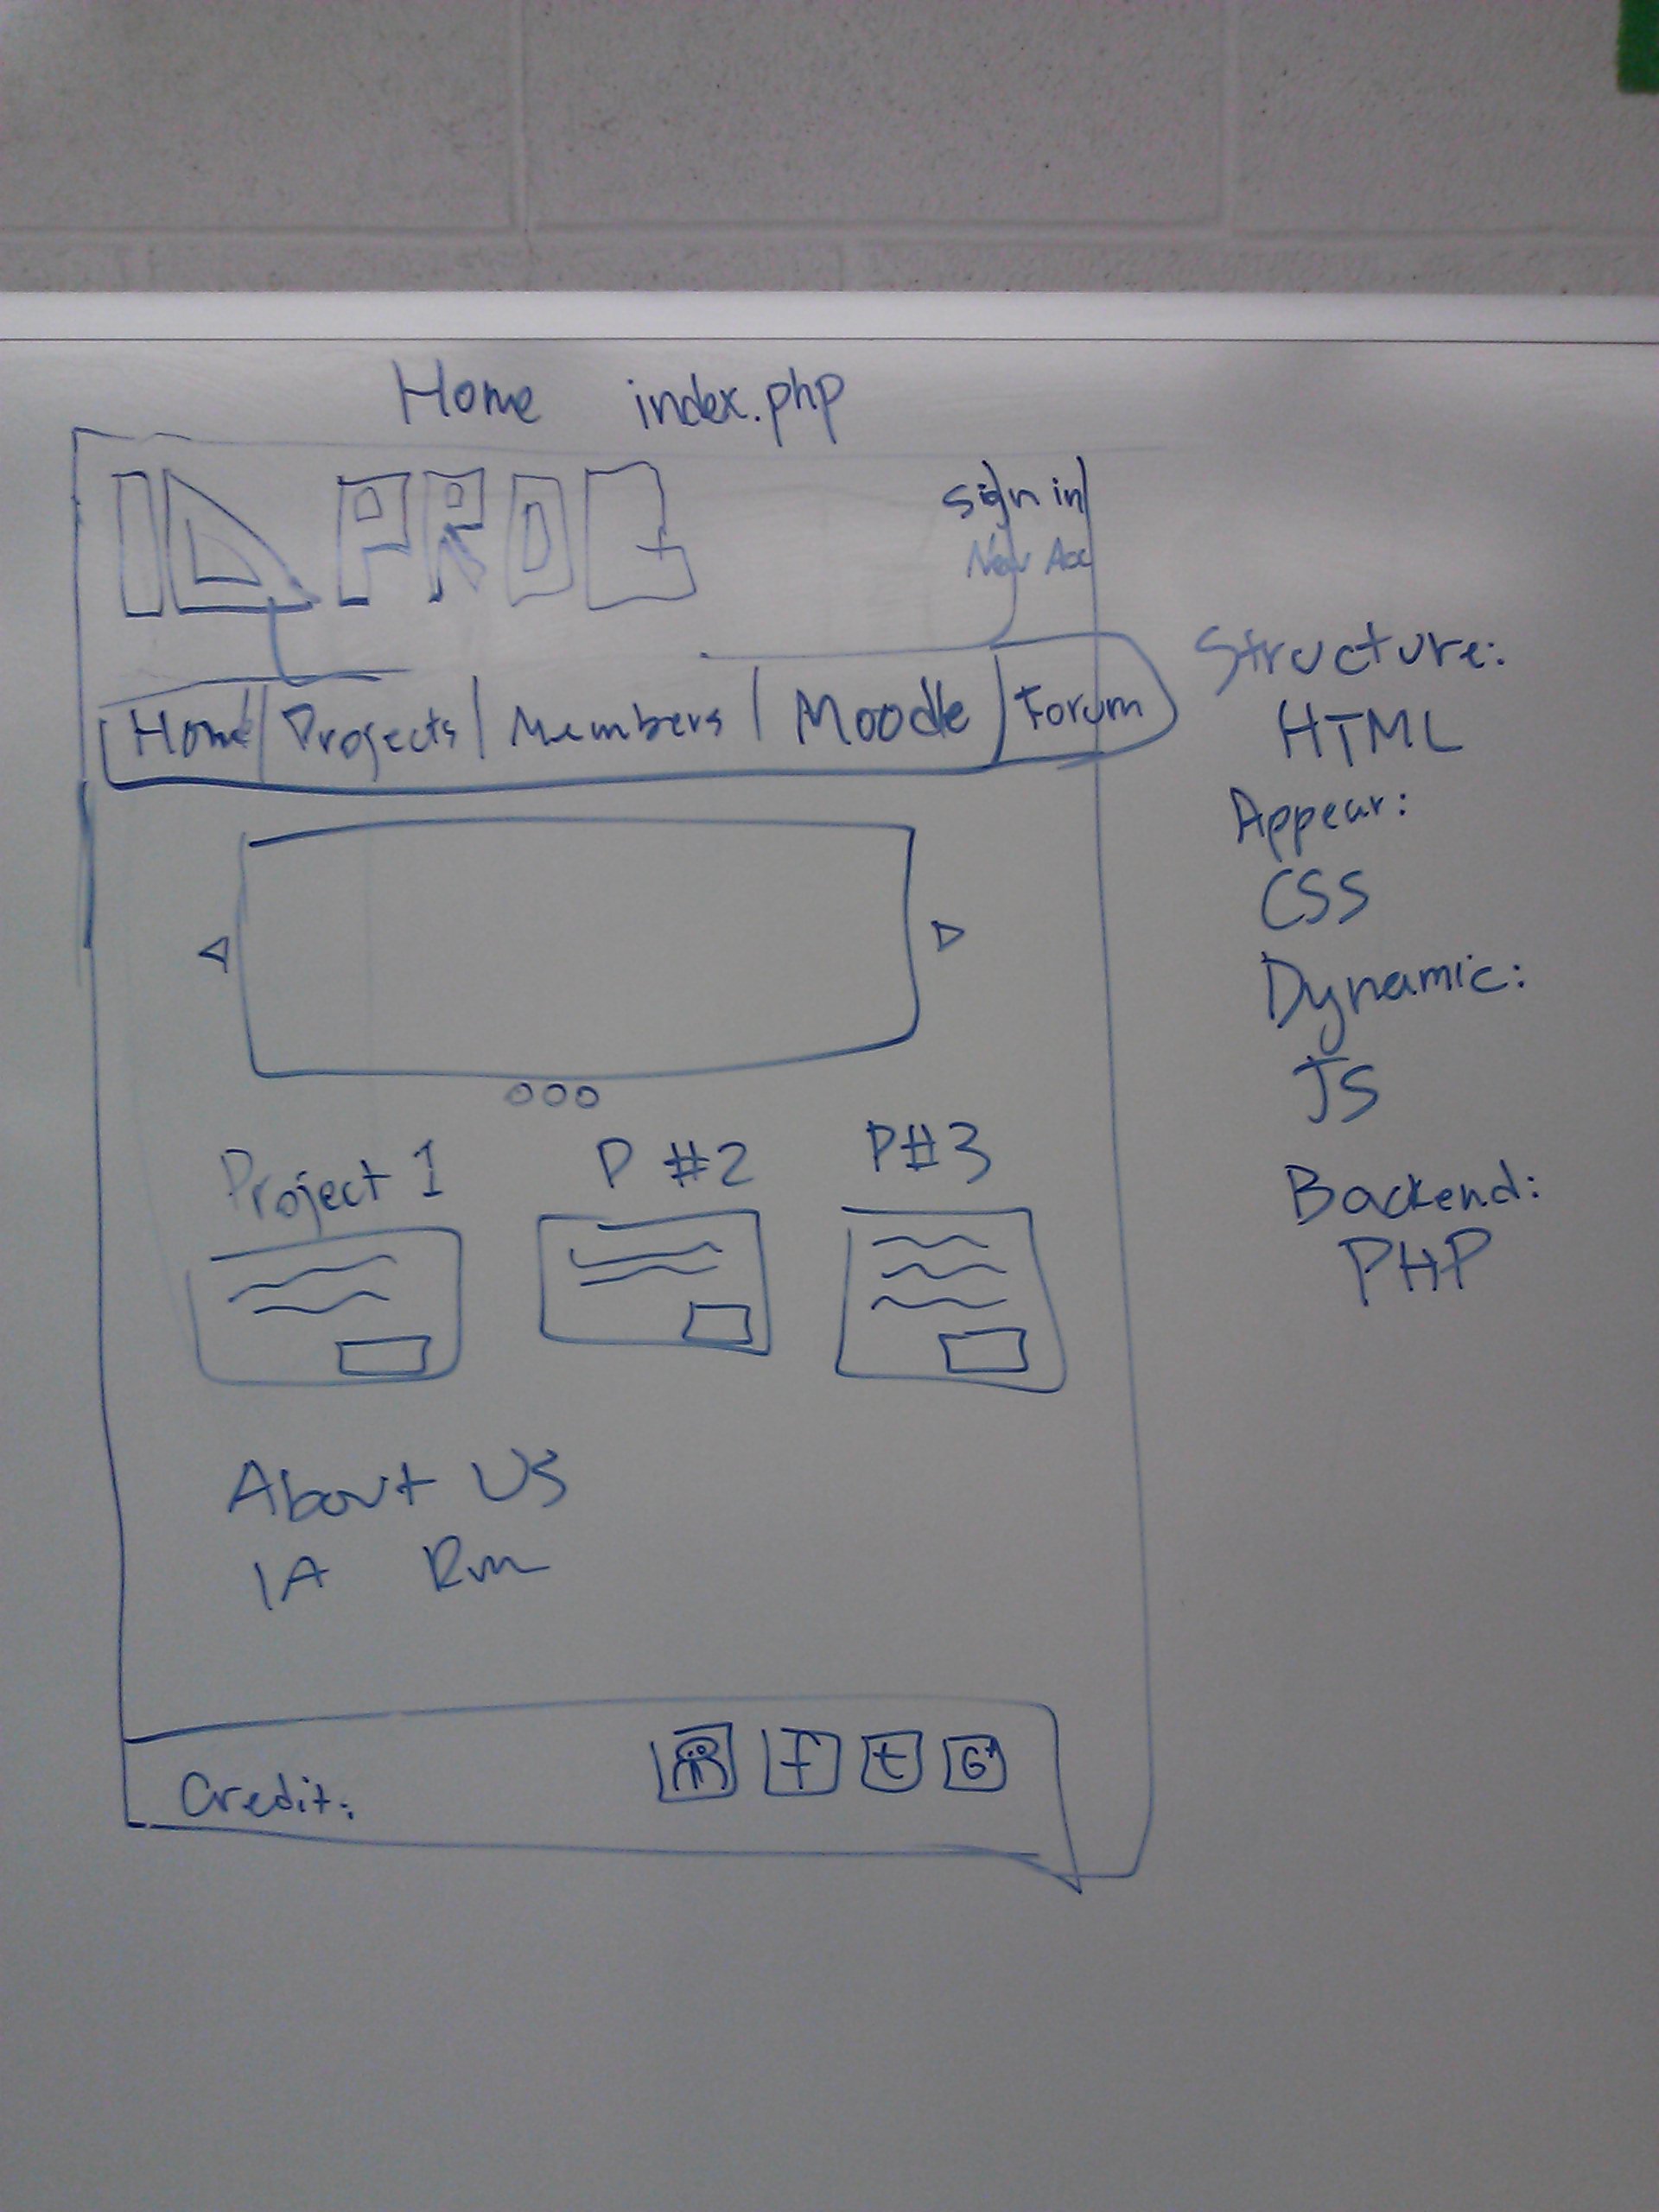 Home index.php
PROG
sign in
New Acc
Home Projects Members Moodle Forum
Project 1 P #2 P#3
About Us
Credit:
f t G+
Structure:
HTML
Appear:
CSS
Dynamic:
JS
Backend:
PHP